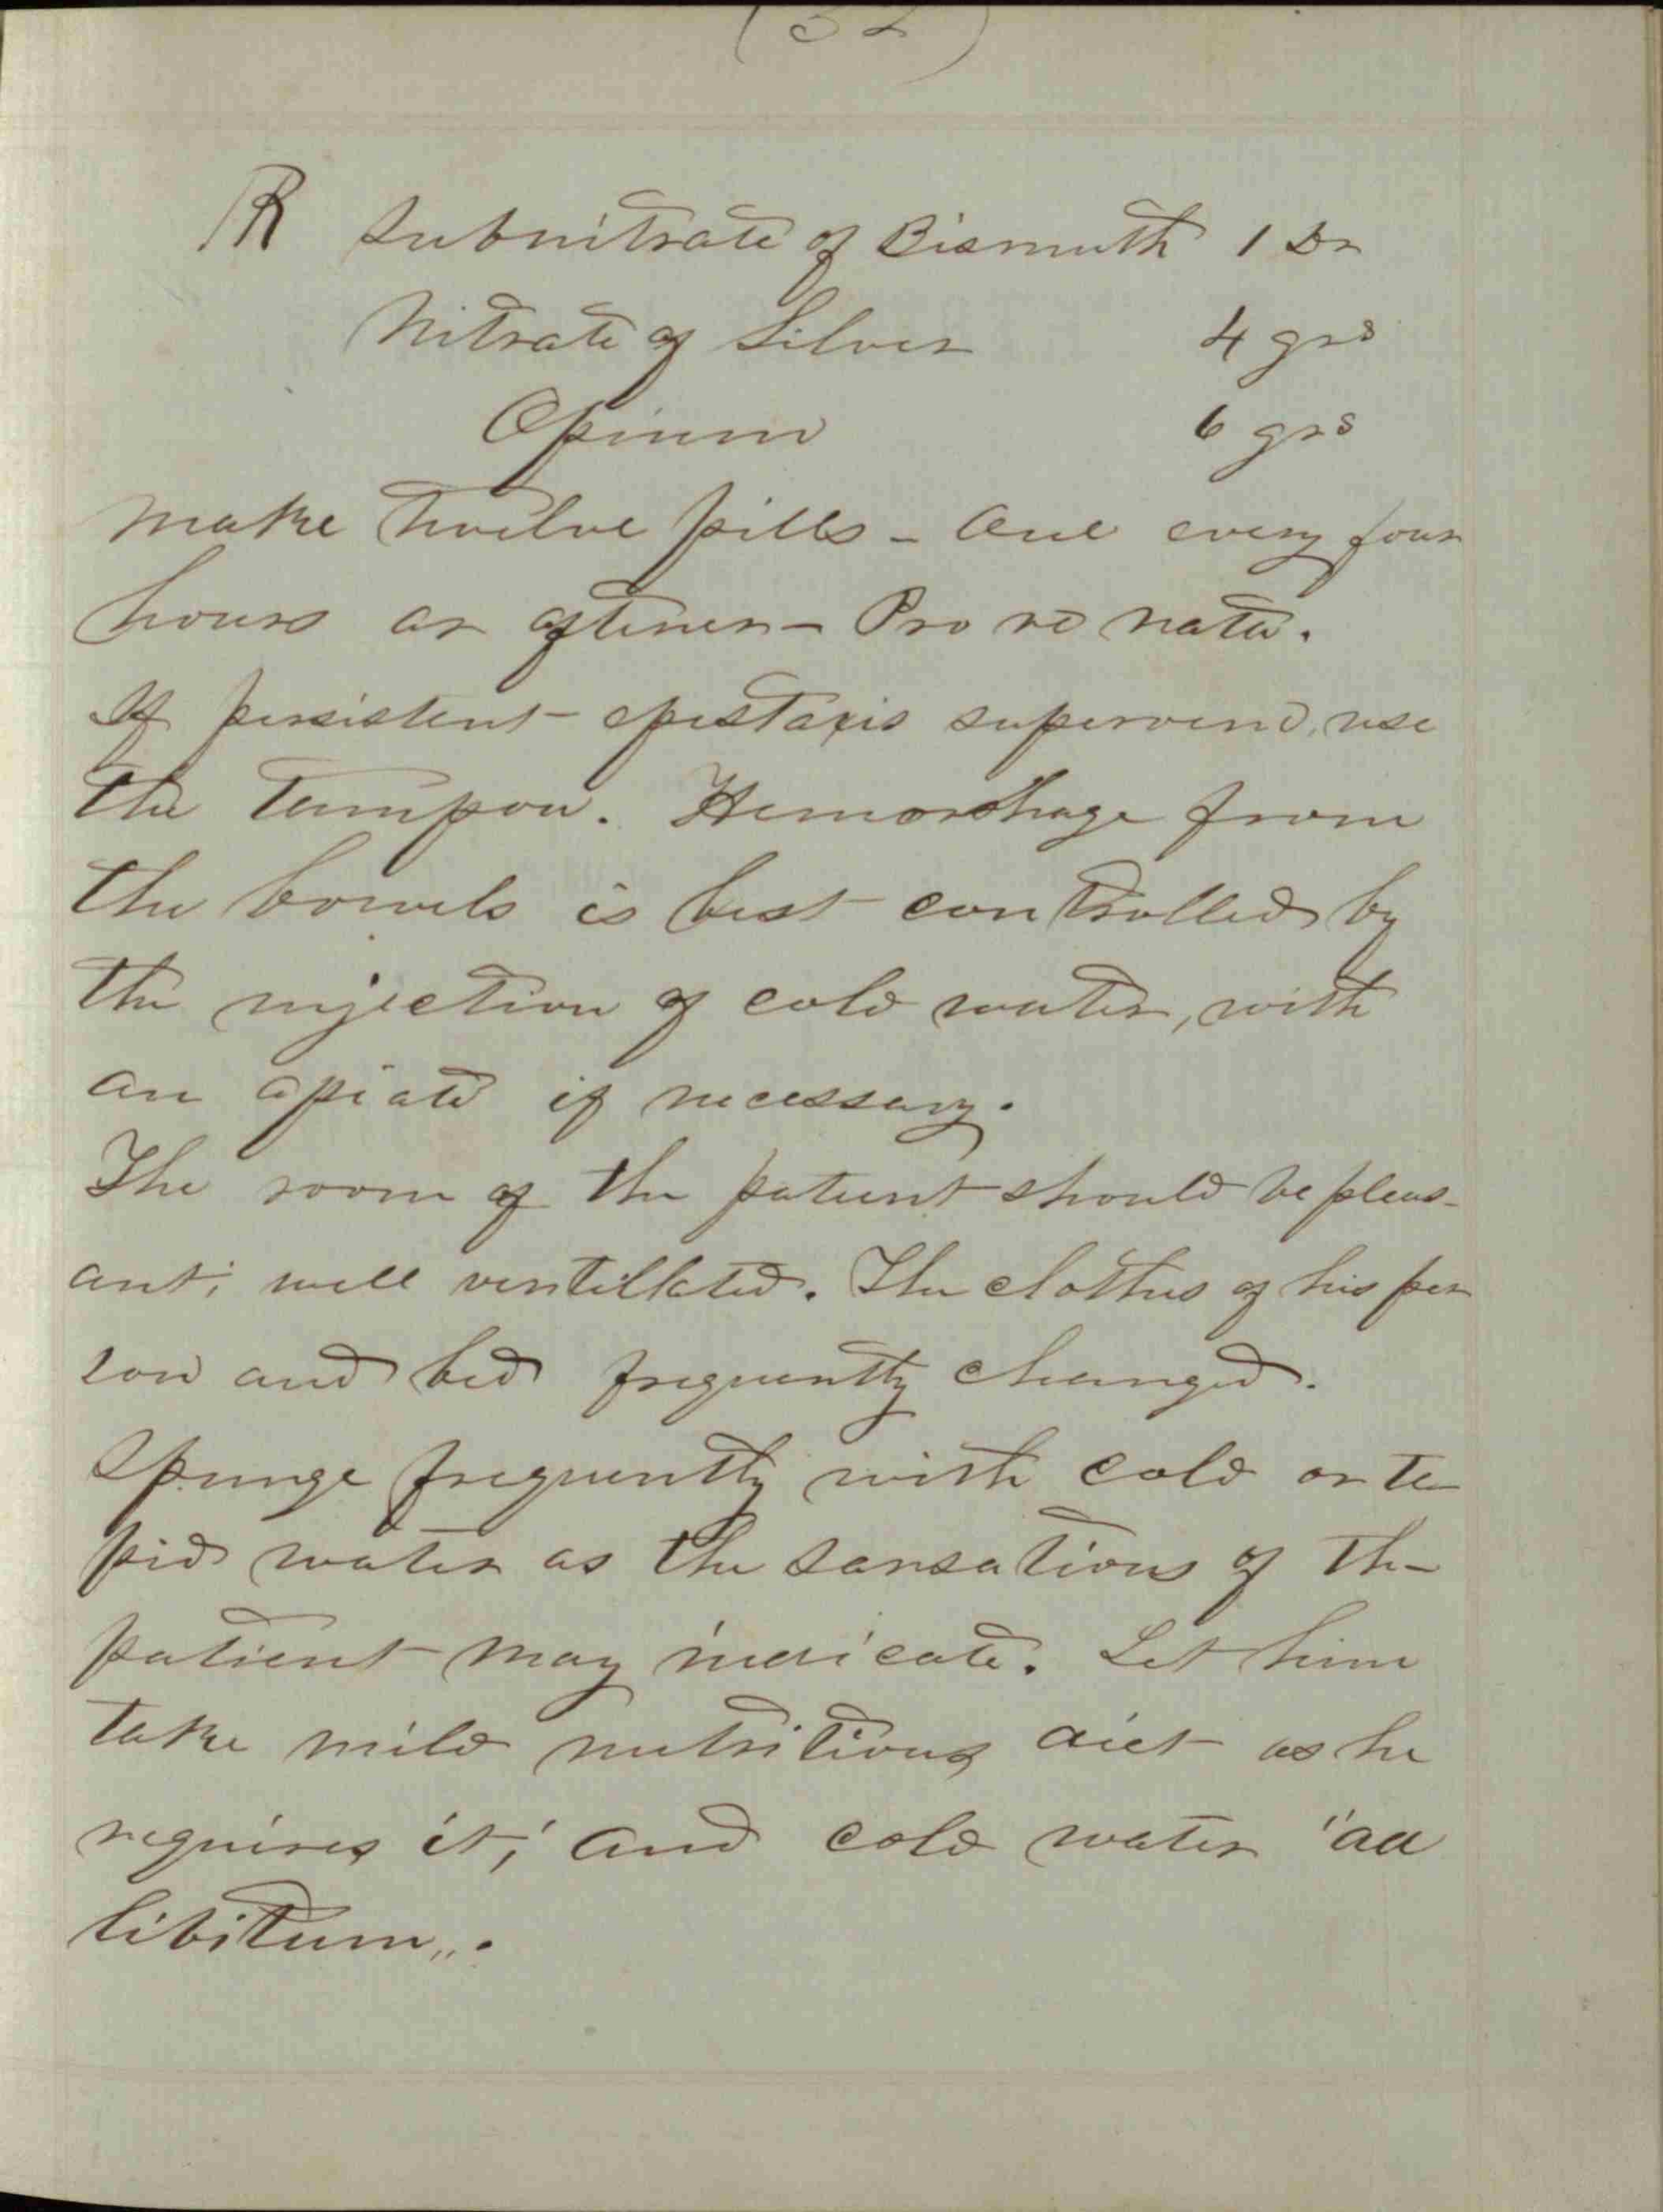 (32)
℞ Subnitrate of Bismuth 1 Dr
Nitrate of Silver 4 grs
Opium 6 grs
Make twelve pills - One every four
hours or oftener - Pro re nata.
If persistent epistaxis supervene, use
the Tampon. Hemorrhage from
the bowels is best controlled by
the injection of cold water, with
an opiate if necessary.
The room of the patient should be pleas-
ant; well ventillated. The clothes of his per
son and bed frequently changed.
Spunge frequently with cold or te-
pid water as the sansations of the
patient may indicate. Let him
take mild nutritious diet as he
requires it; and cold water "ad
libitum„.